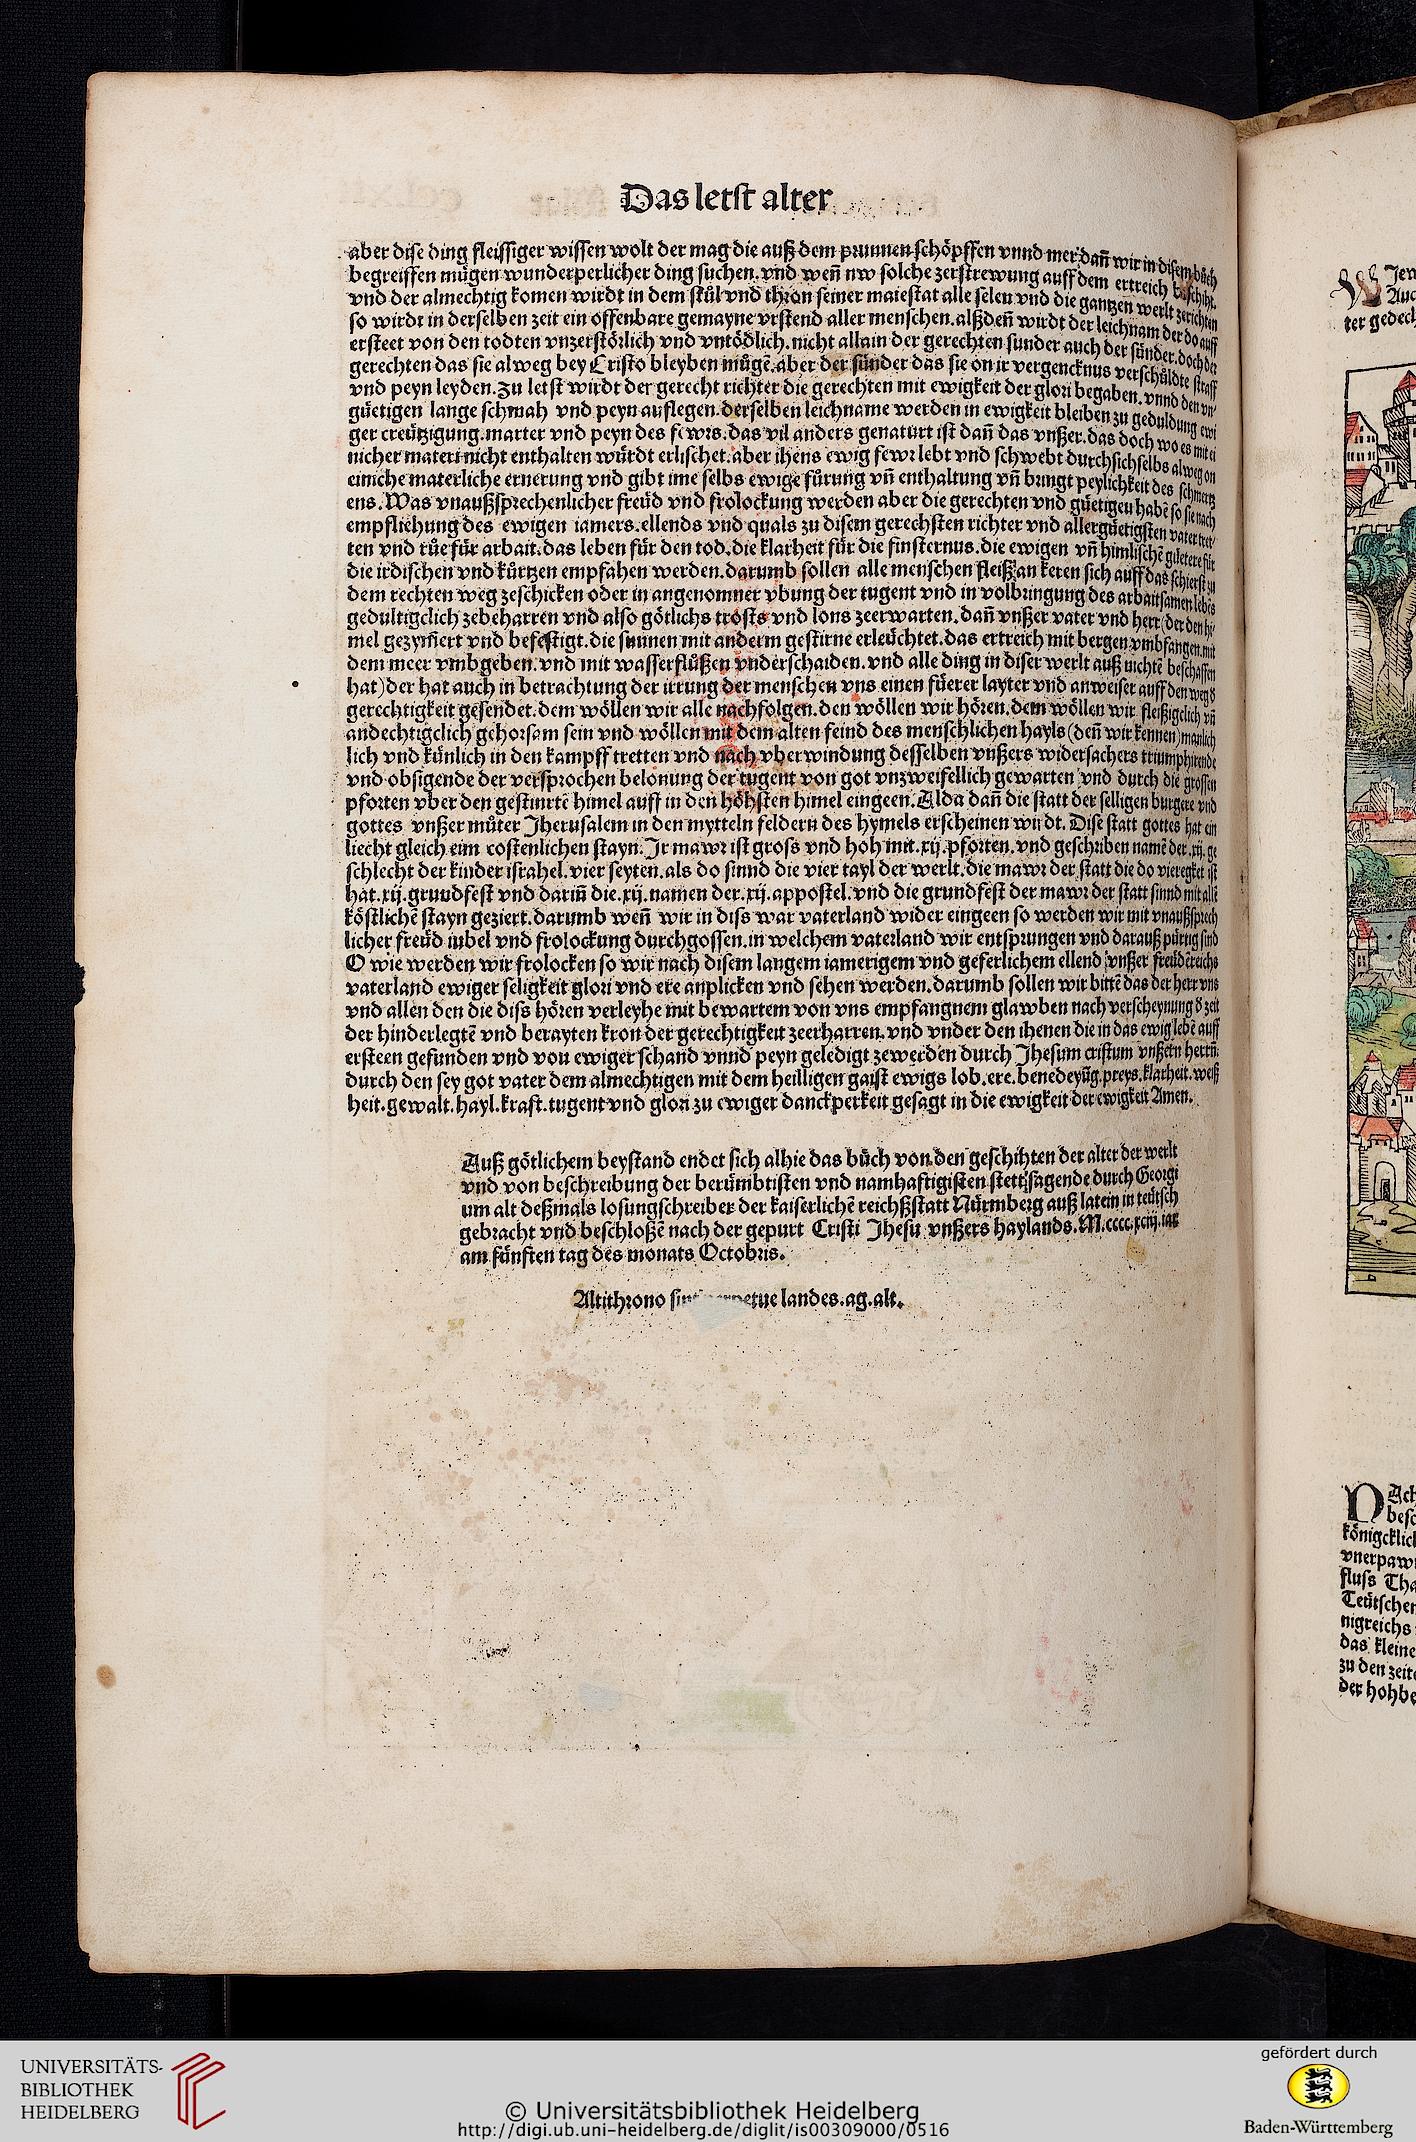 Das letst alter
aber dise ding fleissiger wissen wolt der mag die auß dem prunnen schöpffen vnnd mer dañ wir in disem bůch
begreiffen mügen wunderperlicher ding suchen. vnd weñ nw solche zerstrewung auff dem ertreich beschiht.
vnd der almechtig komen wirdt in dem stůl vnd thron seiner maiestat alle selen vnd die gantzen werlt zerichten
so wirdt in derselben zeit ein offenbare gemayne vrstend aller menschen. alßdeñ wirdt der leichnam der do auff
ersteet von den todten vnzerstörlich vnd vntödlich. nicht allain der gerechten sunder auch der sünder. doch der
gerechten das sie alweg bey Cristo bleyben mügẽ. aber der sünder das sie on ir vergencknus verschuldte straff
vnd peyn leyden. zu letst wirdt der gerecht richter die gerechten mit ewigkeit der glori begaben. vnnd den vn
güetigen lange schmah vnd peyn auflegen. derselben leichname werden in ewigkeit bleiben zu geduldung ewi
ger creützigung. marter vnd peyn des fewrs. das vil anders genaturt ist dañ das vnßer. das doch wo es mit ei
nicher materi nicht enthalten würdt erlischet. aber ihens ewig fewr lebt vnd schwebt durch sich selbs alweg on
einiche materliche ernerung vnd gibt ime selbs ewige fůrung vñ enthaltung vñ bringt peylichkeit des schmertz
ens. Was vnaußsprechenlicher freüd vnd frolockung werden aber die gerechten vnd güetigen habẽ so sie nach
empfliehung des ewigen iamers. ellends vnd quals zu disem gerechsten richter vnd allergüetigsten vater tret
ten vnd růe für arbait. das leben für den tod. die klarheit für die finsternus. die ewigen vñ himlischẽ güetere für
die irdischen vnd kůrtzen empfahen werden. darumb sollen alle menschen fleiß an keren sich auff das schierst zu
dem rechten weg zeschicken oder in angenomner vbung der tugent vnd in volbringung des arbaitsamen lebẽs
gedultigclich zebeharren vnd also götlichs trosts vnd lons zeerwarten. dañ vnßer vater vnd herr (der den hi
mel gezymert vnd befestigt. die sunnen mit anderm gestirne erleüchtet. das ertreich mit bergen vmbfangen. mit
dem meer vmbgeben. vnd mit wasserflüßen vnderschaiden. vnd alle ding in diser werlt auß nichtẽ beschaffen
hat) der hat auch in betrachtung der irrung der menschen vns einen füerer layter vnd anweiser auff den weg d
gerechtigkeit gesendet. dem wöllen wir alle nachfolgen. den wöllen wir hören. dem wöllen wir fleißigclich vñ
andechtigclich gehorsam sein vnd wöllen mit dem alten feind des menschlichen hayls (deñ wir kennen) manlich
lich vnd künlich in den kampff tretten vnd nach vberwindung desselben vnßers widersachers triumphirende
vnd obsigende der versprochen belonung der tugent von got vnzweifellich gewarten vnd durch die grossen
pforten vber den gestirntẽ himel auff in den höhsten himel eingeen. Alda dañ die statt der selligen burgere vnd
gottes vnßer můter Jherusalem in den mytteln feldern des hymels erscheinen wirdt. Dise statt gottes hat ein
liecht gleich eim costenlichen stayn. Jr mawr ist gross vnd hoh mit .xij. pforten. vnd geschriben namẽ der .xij. ge
schlecht der kinder israhel. vier seyten. als do sinnd die vier tayl der werlt. die mawr der statt die do vieregket ist
hat .xij. grundfest vnd dariñ die .xij. namen der .xij. appostel. vnd die grundfest der mawr der statt sinnd mit allẽ
köstlichẽ stayn geziert. darumb weñ wir in diss war vaterland wider eingeen so werden wir mit vnaußsprech
licher freüd iubel vnd frolockung durchgossen. in welchem vaterland wir entsprungen vnd darauß pürtig sind
O wie werden wir frolocken so wir nach disem langem iamerigem vnd geferlichem ellend vnßer freüdẽreichs
vaterland ewiger seligkeit glori vnd ere anplicken vnd sehen werden. darumb sollen wir bittẽ das der herr vns
vnd allen den die diss hören verleyhe mit bewartem von vns empfangnem glawben nach verscheynung d zeit
der hinderlegtẽ vnd berayten kron der gerechtigkeit zeerharren. vnd vnder den ihenen die in das ewig lebẽ auff
ersteen gefunden vnd von ewiger schand vnnd peyn geledigt zewerden durch Jhesum cristum vnßern herrñ.
durch den sey got vater dem almechtigen mit dem heilligen gaist ewigs lob. ere. benedeyũg. preys. klarheit. weiß
heit. gewalt. hayl. kraft. tugent vnd glori zu ewiger danckperkeit gesagt in die ewigkeit der ewigkeit Amen.
Auß götlichem beystand endet sich alhie das bůch von den geschihten der alter der werlt
vnd von beschreibung der berümbtisten vnd namhaftigisten stett. sagende durch Georgi
um alt deßmals losungschreiber der kaiserlichẽ reichßstatt Nürmberg auß latein in teütsch
gebracht vnd beschloßẽ nach der gepurt Cristi Jhesu vnßers haylands. M.cccc.xciij. iar
am fünften tag des monats Octobris.
Altithrono landes. ag. alt.
Jen
Auc
ter gedech
NAch
besc
königcklich
vnerpaw
fluss Tha
Teütschen
nigreichs
das kleine
zu den zeite
der hohbe
UNIVERSITÄTS-
BIBLIOTHEK
HEIDELBERG
© Universitätsbibliothek Heidelberg
http://digi.ub.uni-heidelberg.de/diglit/is00309000/0516
gefördert durch
Baden-Württemberg